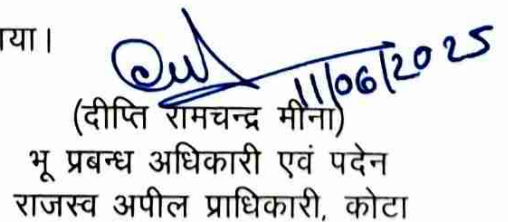 या।
11/06/2025
(दीप्ति रामचन्द्र मीना)
भू प्रबन्ध अधिकारी एवं पदेन
राजस्व अपील प्राधिकारी, कोटा